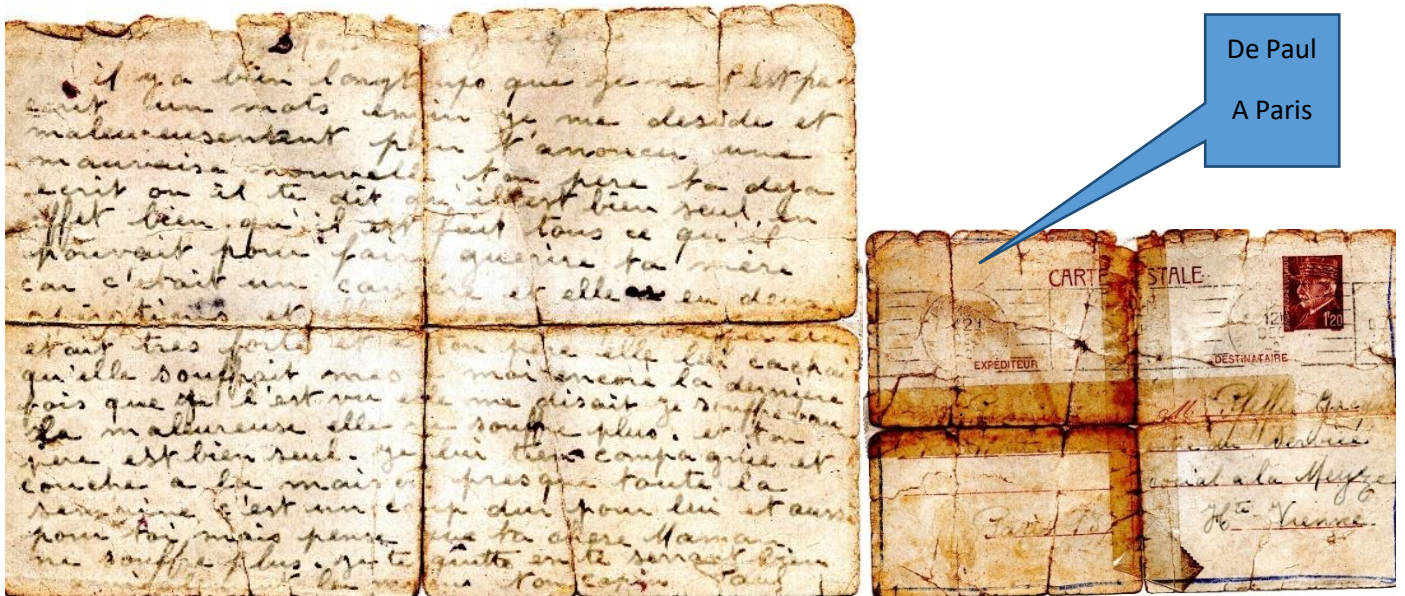 il y a bien longtemps que je ne t'est pas
ecrit un mots enfin je me deside et
maleureusentent pour t'anoncer une
mauvaise nouvelle ton pere ta deja
ecrit ou il te dit qu'il est bien seul, en
effet bien qu'il est fait tous ce qu'il
pouvait pour faire guerire ta mère
car c'était un cancére et elle en deux
opérations et elle
etait tres forte et ton pere elle lui cachai
qu'elle souffrait mes a moi encore la derniere
fois que je l'est vu elle me disait je souffre
la maleureuse elle ne souffre plus. et ton
pere est bien seul. je lui tien compagnie et
couche a la maison presque toute la
semaine c'est un coup dur pour lui et aussi
pour toi mais pense que ta chere Maman
ne souffre plus. je te quitte en te serrant bien
la main ton Paul
De Paul
A Paris
CARTE POSTALE
1F20
EXPÉDITEUR
DESTINATAIRE
M.
a la Meyze
Paris
Hte Vienne